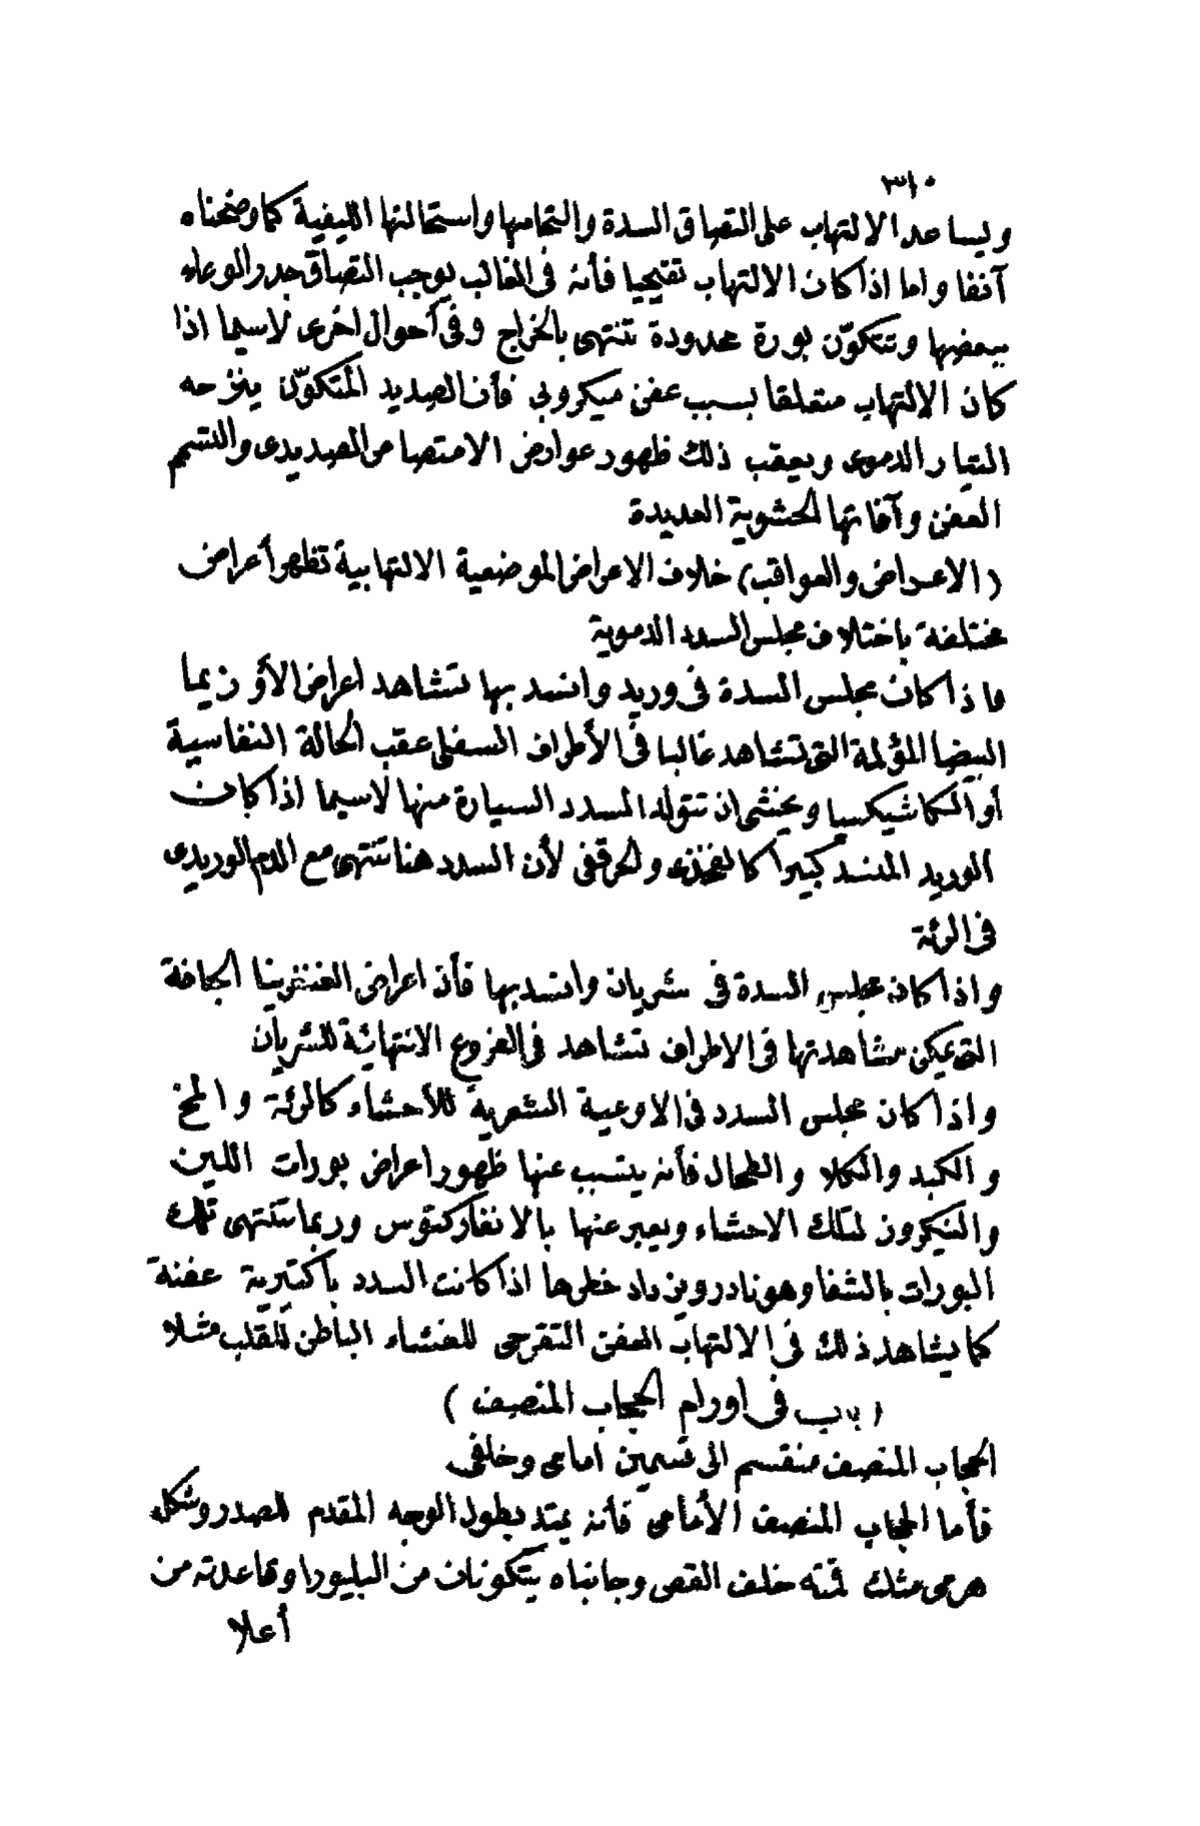 ٣١٠
ويساعد الالتهاب على التصاق السدة والتحامها واستحالتها الليفية كما وضحناه
آنفا واما اذا كان الالتهاب تقيحيا فأنه فى الغالب يوجب التصاق جدر الوعاء
ببعضها وتتكوّن بورة محدودة تنتهى بالخراج وفى أحوال اخرى لاسيما اذا
كان الالتهاب متعلقا بسبب عفن ميكروبى فأن الصديد المتكوّن ينزحه
التيار الدموى ويعقب ذلك ظهور عوارض الامتصاص الصديدى والتسمم
العفن وآفاتها الحشوية العديدة
(الاعراض والعواقب) خلاف الاعراض الموضعية الالتهابية تظهر أعراض
مختلفة باختلاف مجلس السدد الدموية
فاذا كان مجلس السدة فى وريد وانسد بها تشاهد اعراض الأوزيما
البيضا المؤلمة التى تشاهد غالبا فى الأطراف السفلى عقب الحالة النفاسية
أو الكاشيكسيا ويخشى ان تتولد السدد السيارة منها لاسيما اذا كان
الوريد المنسد كبيرا كالفخذى والحرقفى لأن السدد هنا تنتهى مع الدم الوريدى
فى الرئة
واذا كان مجلس السدة فى شريان وانسد بها فأن اعراض الغنغرينا الجافة
التى يمكن مشاهدتها فى الاطراف تشاهد فى الفروع الانتهائية للشريان
واذا كان مجلس السدد فى الاوعية الشعرية للأحشاء كالرئة والمخ
والكبد والكلا والطحال فأنه يتسبب عنها ظهور اعراض بورات اللين
والنيكروز لتلك الاحشاء ويعبر عنها بالانفاركتوس وربما تنتهى تلك
البورات بالشفا وهو نادر ويزداد خطرها اذا كانت السدد باكتيرية عفنة
كما يشاهد ذلك فى الالتهاب العفن التقرحى للغشاء الباطن للقلب مثلا
(باب فى اورام الحجاب المنصف)
الحجاب المنصف منقسم الى قسمين امامى وخلفى
فأما الحجاب المنصف الأمامى فأنه يمتد بطول الوجه المقدم للصدر وشكله
هرمى مثلث قمته خلف القص وجانباه يتكونان من البليورا وقاعدته من
أعلا